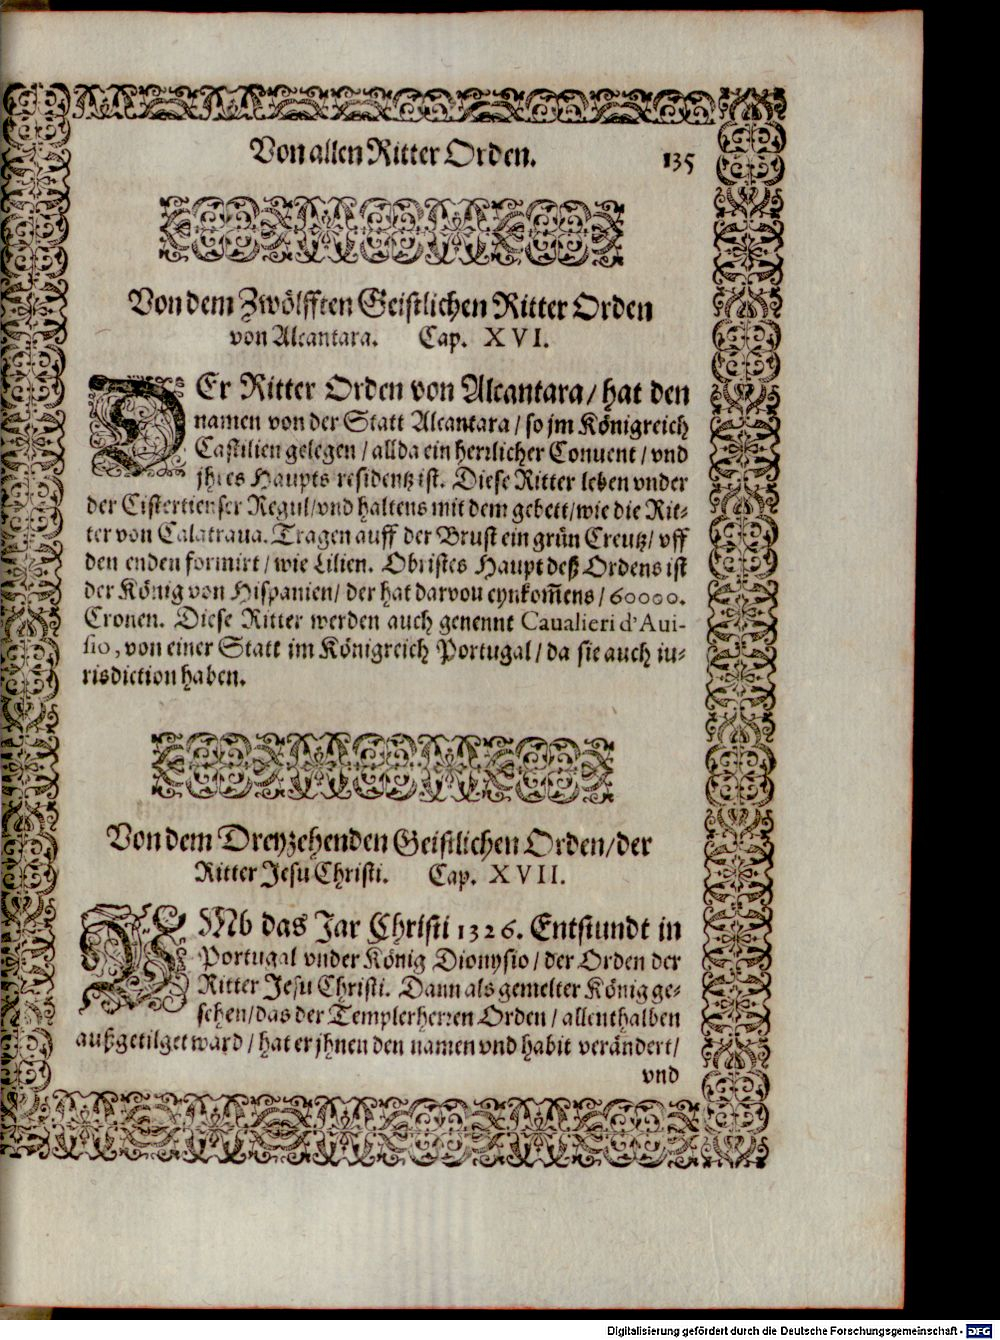 Von allen Ritter Orden. 135
Von dem Zwölfften Geistlichen Ritter Orden
von Alcantara. Cap. XVI.
DEr Ritter Orden von Alcantara / hat den
namen von der Statt Alcantara / so jm Königreich
Castilien gelegen / allda ein herrlicher Conuent / vnd
jhres Haupts residentz ist. Diese Ritter leben vnder
der Cistertienser Regul / vnd haltens mit dem gebett / wie die Rit-
ter von Calatraua. Tragen auff der Brust ein grün Creutz / vff
den enden formirt / wie Lilien. Obristes Haupt deß Ordens ist
der König von Hispanien / der hat darvou eynkom̃ens / 60000.
Cronen. Diese Ritter werden auch genennt Caualieri d'Aui-
sio, von einer Statt im Königreich Portugal / da sie auch iu-
risdiction haben.
Von dem Dreyzehenden Geistlichen Orden / der
Ritter Jesu Christi. Cap. XVII.
VMb das Jar Christi 1326. Entstundt in
Portugal vnder König Dionysio / der Orden der
Ritter Jesu Christi. Dann als gemelter König ge-
sehen / das der Templerherren Orden / allenthalben
außgetilget ward / hat er jhnen den namen vnd habit verändert /
vnd
Digitalisierung gefördert durch die Deutsche Forschungsgemeinschaft - DFG